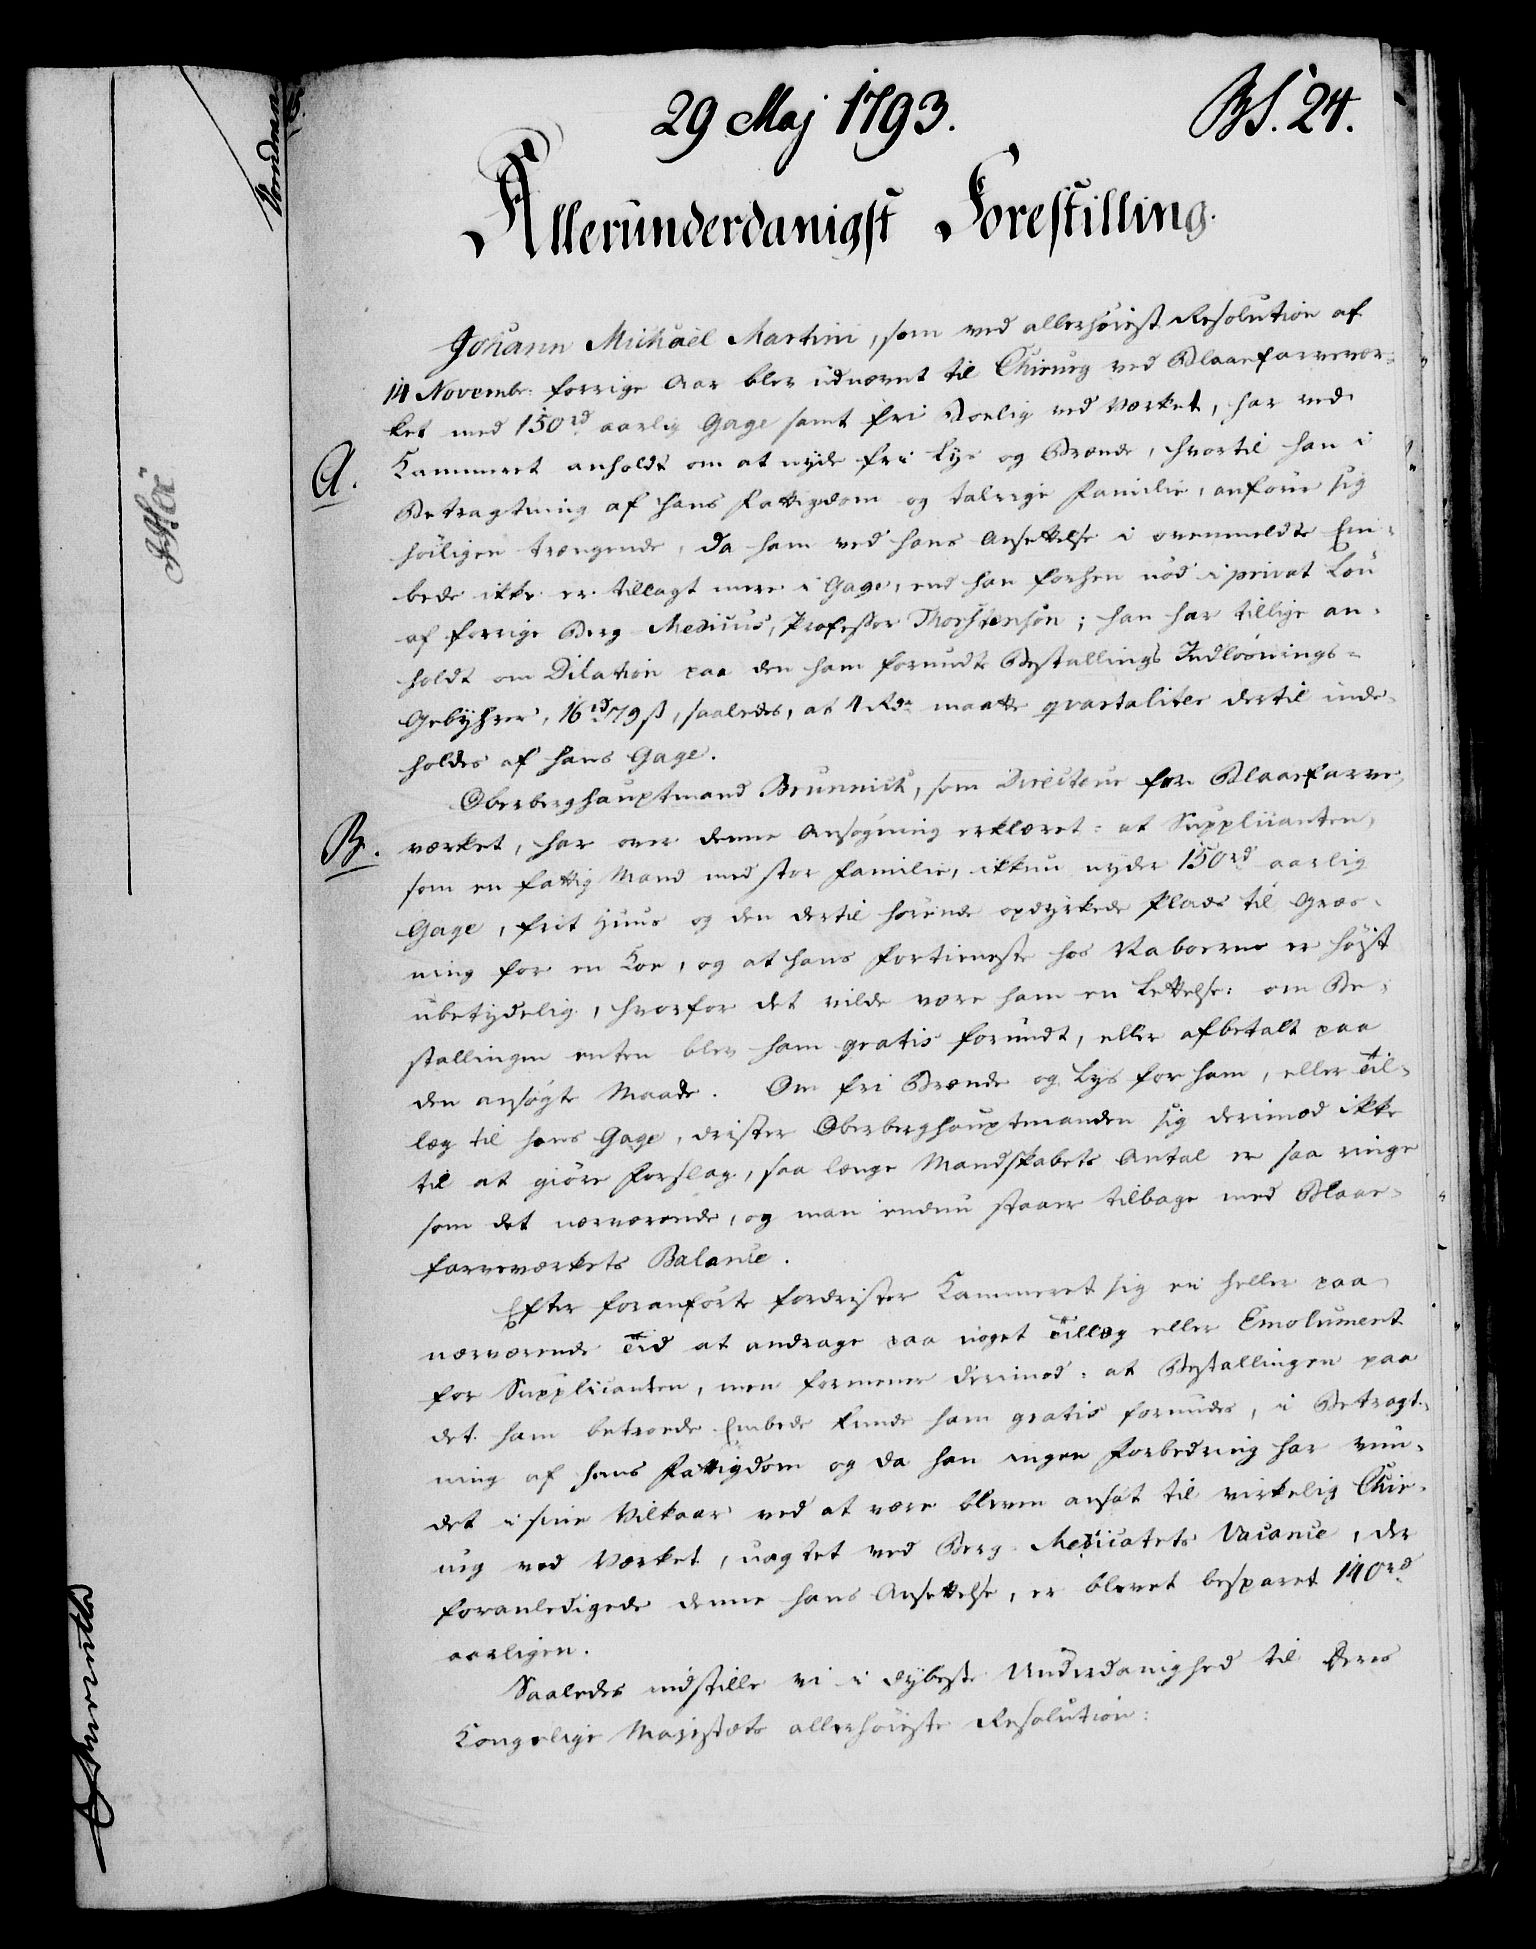 29 Maj 1793. BS. 24.
Allerunderdanigst Forestilling.
Johann Michaël Martini, som ved allerhöiest Resolution af
14 Novembr. forrige Aar blev udnevnt til Chirurg ved Blaafarvevær-
ket med 150 rd aarlig Gage samt fri Boelig ved Værket, har ved
A. Kammeret anholdt om at nyde frie Lys og Brænde, hvortil han i
Betragtning af hans Fattigdom og talrige Familie, anförer sig
höiligen trængende, da ham ved hans Ansettelse i ovenmeldte Em-
bede ikke er tillagt mere i Gage, end han forhen nöd i privat Lön
af forrige Berg-Medicus, Professor Thorstensön; han har tillige an-
holdt om Dilation paa den ham forundte Bestallings Indlösnings-
Gebyhrer, 16 rd 79 ß, saaledes, at 4 Rd maatte qvartaliter dertil inde-
holdes af hans Gage.
Oberberghauptmand Brunnich, som Directeur for Blaafarve-
B. værket, har over denne Ansögning erklæret: at Supplicanten,
som en fattig Mand med stor Familie, ikkun nyder 150 rd aarlig
Gage, frit Huus og den dertil hörende opdyrkede Plads til Græs-
ning for en Koe, og at hans Fortieneste hos Naboerne er höjst
ubetydelig, hvorfor det vilde være ham en Lettelse: om Be-
stallingen enten blev ham gratis forundt, eller afbetalt paa
den ansögte Maade. Om fri Brænde og Lys for ham, eller Til-
læg til hans Gage, drister Oberberghauptmanden sig derimod ikke
til at giöre Forslag, saa længe Mandskabets Antal er saa ringe
som det nærværende, og man endnu staaer tilbage med Blaae-
farveværkets Balance.
Efter foranförte fordrister Kammeret sig ei heller paa
nærværende Tid at andrage paa noget Tillæg eller Emolument
for Supplicanten, men formener derimod: at Bestallingen paa
det ham betroede Embede kunde ham gratis forundes, i Betragt-
ning af hans Fattigdom og da han ingen Forbedring har vun-
det i sine Vilkaar ved at være bleven ansat til virkelig Chir-
urg ved Værket, uagtet ved Berg-Medicatets Vacance, der
foranledigede denne hans Ansettelse, er blevet besparet 140 rd
aarligen.
Saaledes indstille vi i dybeste Underdanighed til Deres
Kongelige Majestæts allerhöieste Resolution: